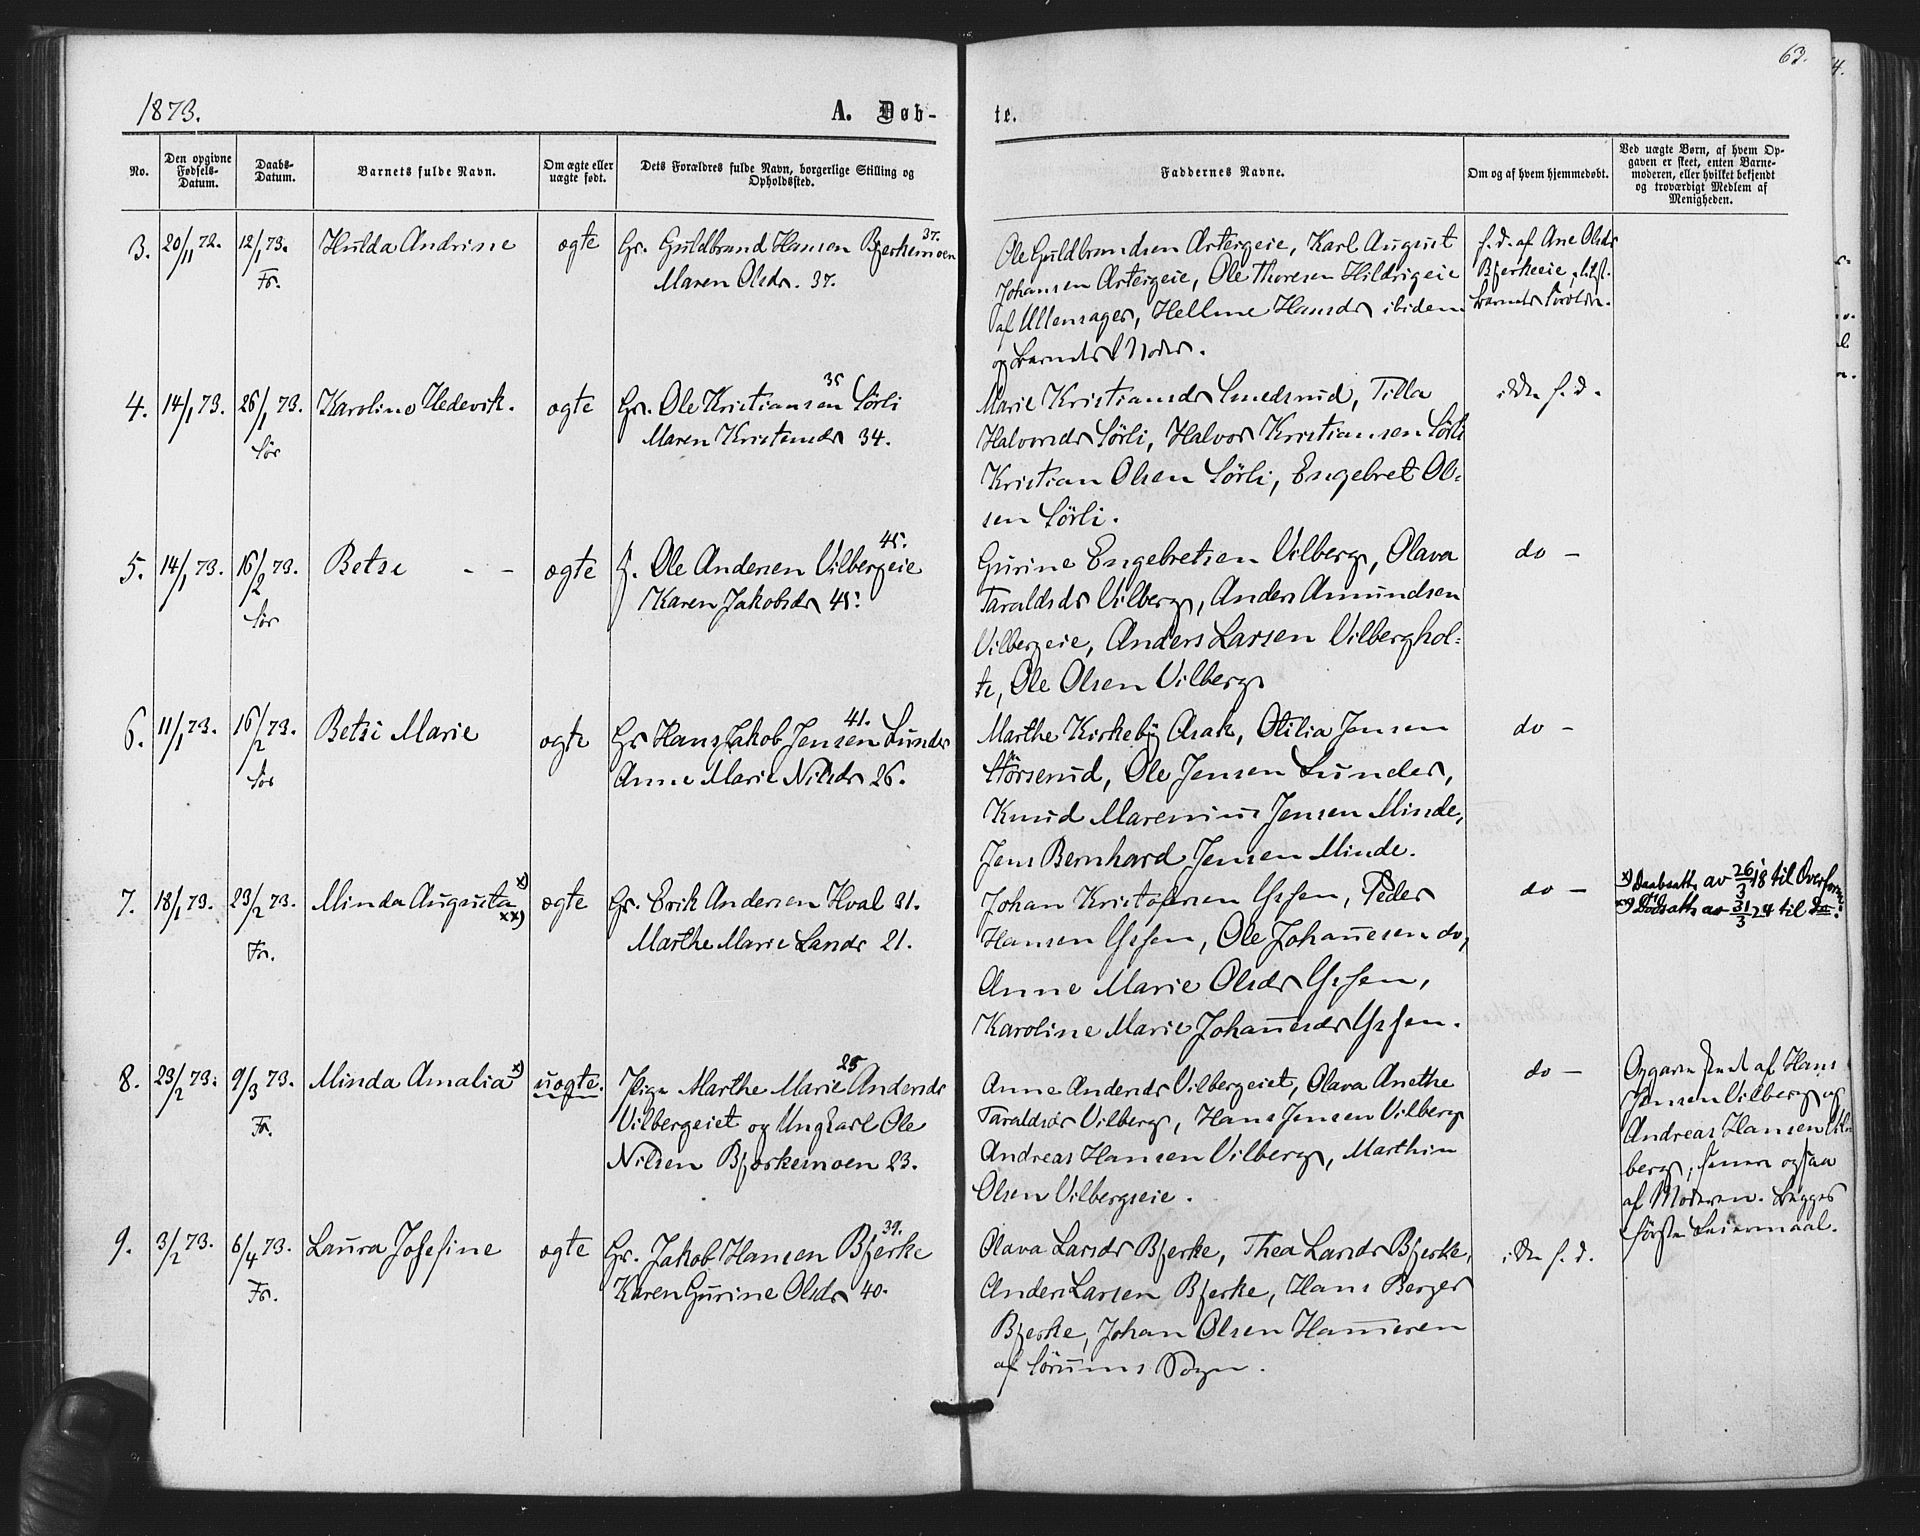 63.
4.
1873.
A. Døb-
te.
No.
Den opgivne Fødsels-Datum.
Daabs-Datum.
Barnets fulde Navn.
Om ægte eller uægte født.
Dets Forældres fulde Navn, borgerlige Stilling og Opholdssted.
Faddernes Navne.
Om og af hvem hjemmedøbt.
Ved uægte Børn, af hvem Op-
gaven er skeet, enten Barne-
moderen, eller hvilket bekjendt
og troværdigt Medlem af
Menigheden.
3. 20/11 72. 12/1 73. Fr. Hulda Andrine ægte
Gr. Guldbrand Hansen Bjerkemoen 37.
Maren Olsdr. 37.
Ole Guldbrandsen Astergeie, Karl August
Johansen Astergeie, Ole Thoresen Hildrigeie
af Ullensager, Hellene Hansdr ibidem
og Barnets Moder.
h. d. af Ane Olsdr
Bjerkeeie,
Barnets
4. 14/1 73. 26/1 73. Sør Karoline Hedevik. ægte
Gr. Ole Kristiansen 35 Sörli
Maren Kristensdr 34.
Marie Kristiansdr Smedsrud, Tilla
Halvorsdr Sörli, Halvor Kristiansen Sörli
Kristian Olsen Sörli, Engebret Ol-
sen Sörli.
ikke h. d.
5. 14/1 73. 16/2 73. Sør Betsi - - ægte
J. Ole Andersen Vilbergeie 45.
Karen Jakobsdr 45.
Gurine Engebretsen Vilberg, Olava
Taraldsdr Vilberg, Anders Amundsen
Vilbergeie, Anders Larsen Vilberghol-
te, Ole Olsen Vilberg
do -
6. 11/1 73. 16/2 73. Sør Betsi Marie ægte
Gr Hans Jakob Jensen 41. Lunder
Anne Marie Nilsdr 26.
Marthe Kirkeby Asak, Otilia Jensen
Hörserud, Ole Jensen Lunder,
Knud Marenius Jensen Minde,
Jens Bernhard Jensen Minde.
do -
7. 18/1 73. 23/2 73. Fr. Minda Augusta x) xx) ægte
Gr. Erik Andersen Hval 31.
Marthe Marie Larsdr 21.
Johan Kristofersen Yssen, Peder
Hansen Yssen, Ole Johannesen do,
Anne Marie Olsdr Yssen,
Karoline Marie Johannesdr Yssen.
do -
x) Daabsatt. av 26/3 18 til Overform.
xx) Dåbsatt. av 31/3 24 til Do.
8. 23/2 73. 9/3 73. Fr. Minda Amalia x) uægte.
Pige Marthe Marie 25 Andersdr
Vilbergeiet og Ungkarl Ole
Nilsen Bjerkemoen 23.
Anne Andersdr Vilbergeiet, Olava Anethe
Taraldsdr Vilberg, Hans Jensen Vilberg
Andreas Hansen Vilberg, Marthin
Olsen Vilbergseie.
do -
Opgaven skeet af Hans
Jensen Vilberg og
Andreas Hansen Vil-
berg, senere ogsaa
af Moderen. Begges
første Leiermaal.
9. 3/2 73. 6/4 73. Fr. Laura Josefine ægte
Gr. Jakob Hansen Bjerke 39.
Karen Gurine Olsdr 40.
Olava Larsdr Bjerke, Thea Larsdr Bjerke,
Anders Larsen Bjerke, Hans Berger
Bjerke, Johan Olsen Hammeren
af Sörums Sogn.
ikke h. d.